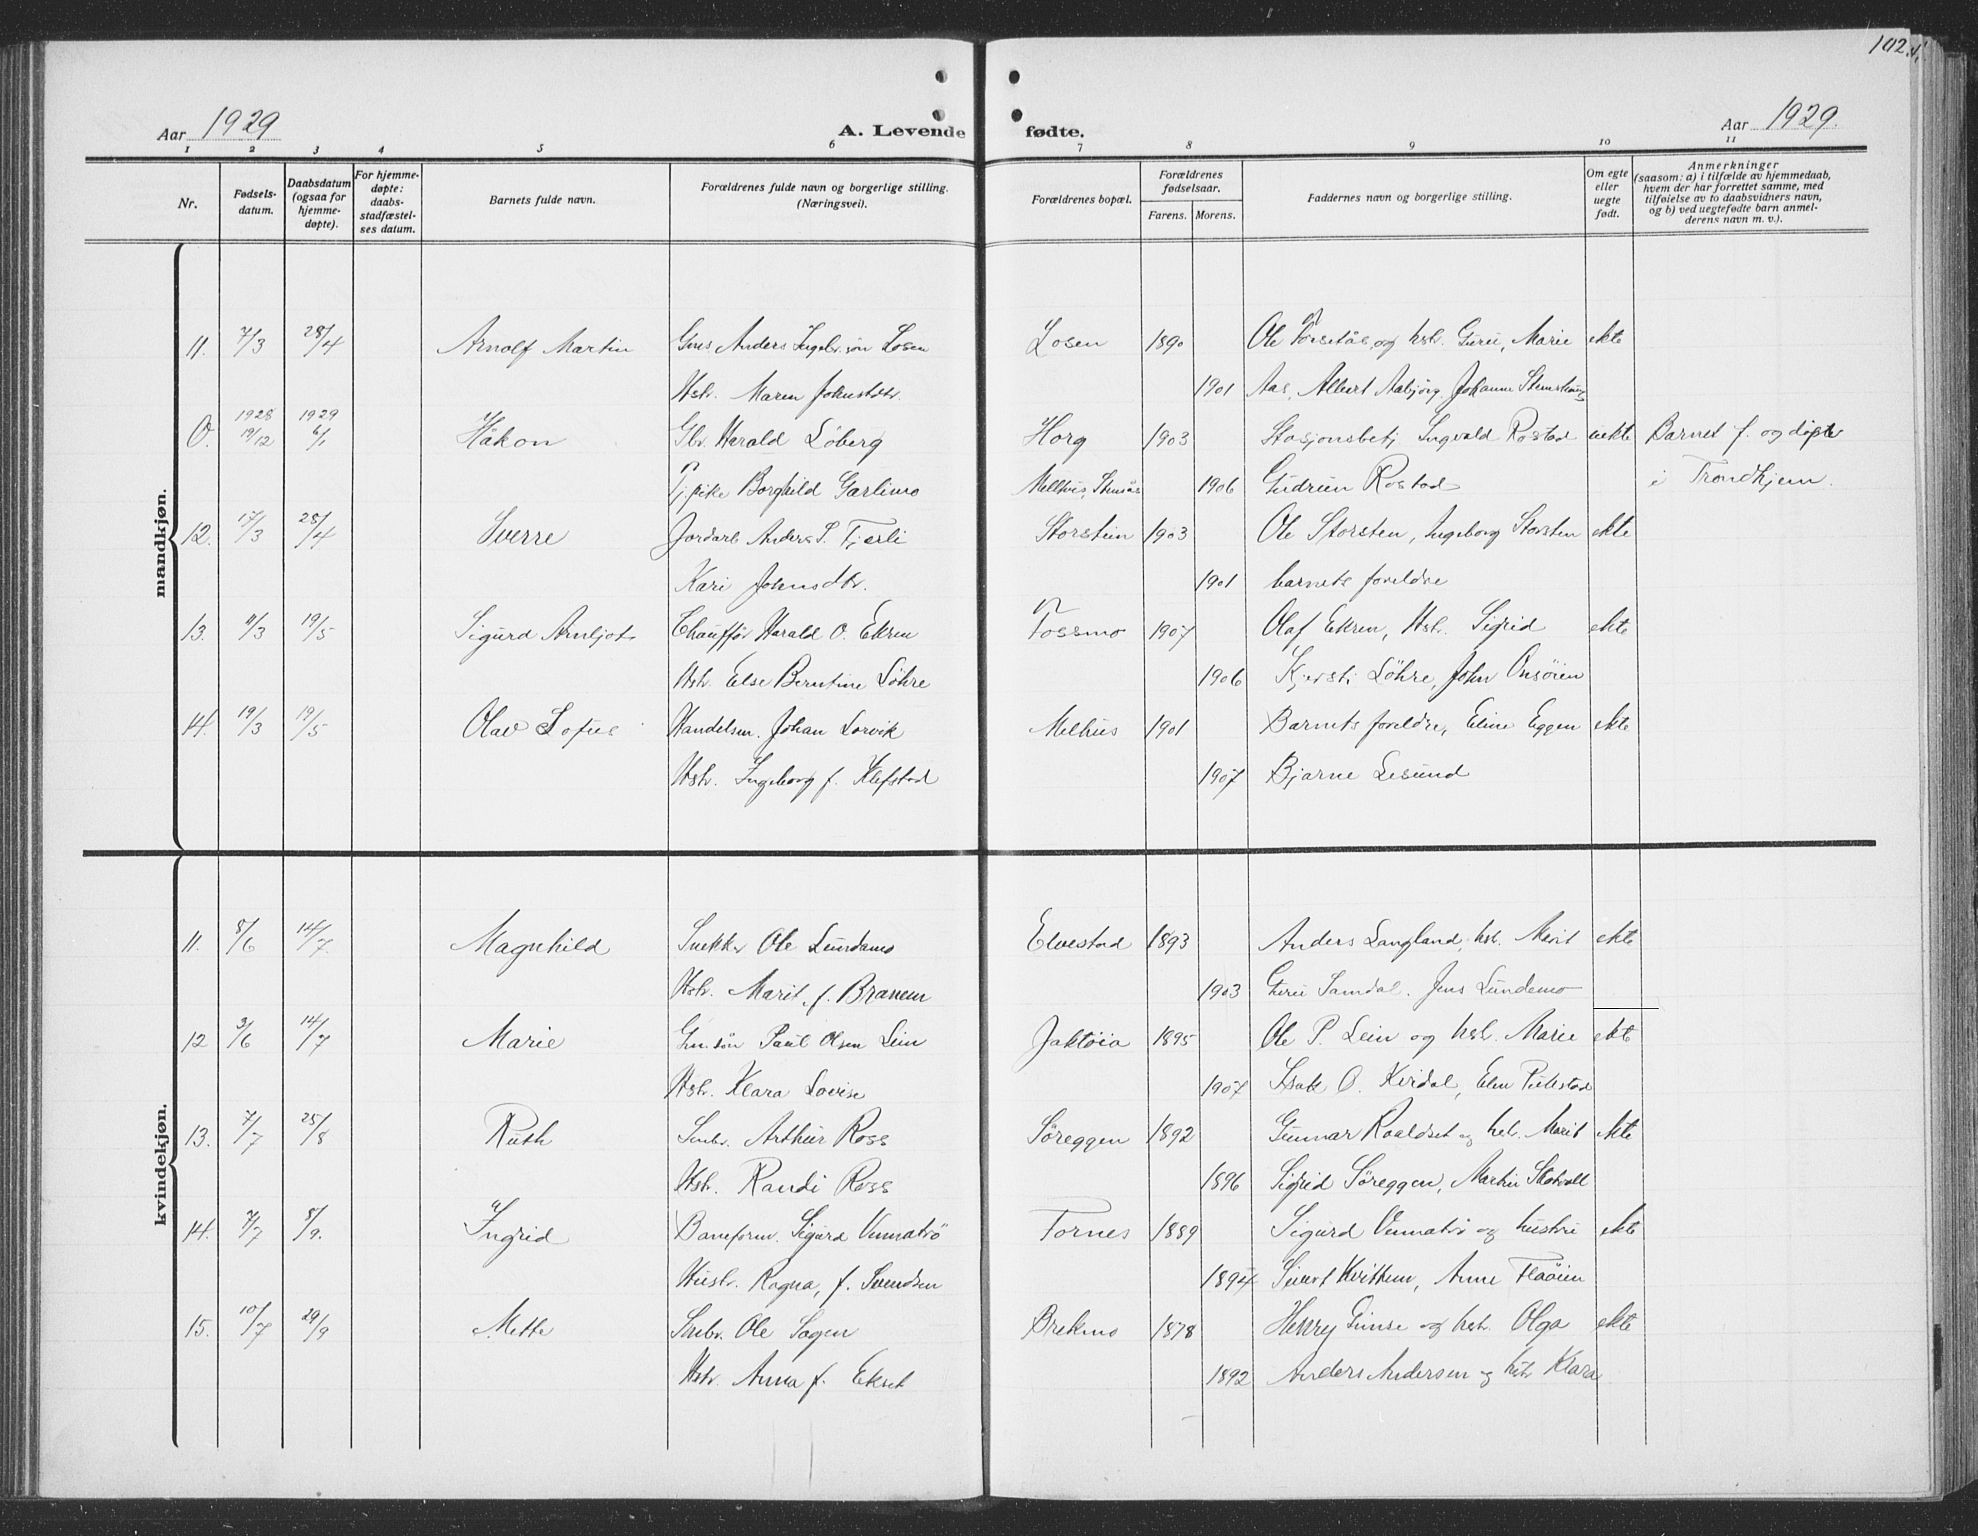 102.
Aar 1929 A. Levende fødte. Aar 1929.
1 2 3 4 5 6 7 8 9 10 11
Nr. Fødsels-datum. Daabsdatum (ogsaa for hjemme-døpte). For hjemme-døpte: daabs-stadfæstel-ses datum. Barnets fulde navn. Forældrenes fulde navn og borgerlige stilling. (Næringsvei). Forældrenes bopæl. Forældrenes fødselsaar. Farens. Morens. Faddernes navn og borgerlige stilling. Om egte eller uegte født. Anmerkninger (saasom: a) i tilfælde av hjemmedaab, hvem der har forrettet samme, med tilføielse av to daabsvidners navn, og b) ved uegtefødte barn anmel-derens navn m. v.).
mandkjøn.
11. 7/3 28/4 Arnolf Martin Anders Losen Losen 1890 Ole og hstr. Guru, Marie ekte
Hstr. Maren Johnsdtr. 1901 Aas, Albert Aabjörg, Johanne
O. 1928 19/12 1929 6/1 Håkon Gbr. Harald Löberg Horg 1903 Stasjonsbetj. Ingvald Rostad uekte Barnet f. og döpt
Pike Borghild Garlimo 1906 Gudrun Rostad i Trondhjem.
12. 17/3 28/4 Sverre Jordarb. Anders P. Tjerli Storstein 1903 Ole Storsten, Ingeborg Storsten ekte
Kari Johnsdtr. 1901 barnets foreldre
13. 11/3 19/5 Sigurd Arnljot Chauffør Harald O. Ekren Fossmo 1907 Olaf Ekren, Hstr. Sigrid ekte
Hstr. Else Berntine Löhre 1906 Kjersti Löhre, John Onsöien
14. 19/3 19/5 Olav Lofus Handelsm. Johan Lorvik Melhus 1901 Barnets foreldre, Eline Eggen ekte
Hstr. Ingeborg f. Klefstad 1907 Bjarne Lesund
kvindekjøn.
11. 8/6 14/7. Magnhild Snekker Ole Lundamo Elvestad 1893 Anders Langland, hstr. Marit ekte
Hstr. Marit, f. Branem 1903 Guru Samdal. Jens Lundemo
12 3/6 14/7 Marie Paul Olsen Lein Jaktöia 1895 Ole P. Lein og hstr. Marie ekte
Hstr. Klara Lovise 1907 Isak O. Kvidal, Elen
13. 7/7 25/8 Ruth Smbr. Arthur Ross Söreggen 1892 Gunnar Roaldset og hstr. Marit ekte
Hstr. Randi Ross 1896 Sigrid Söreggen, Martin Skotvoll
14. 7/7 8/9. Ingrid Baneform. Sigurd Vennatrö Fornes 1889 Sigurd Vennatrö og hustru ekte
Hustr. Ragna, f. Svendsen 1894 Sivert Kvithem, Anne Flaöien
15. 10/7 29/9 Mette Smbr. Ole Sagen Brekmo 1878 Henry Gimse og hstr. Olga ekte
Hstr. Anna f. Ekset 1892 Anders Andersen og hstr Klara